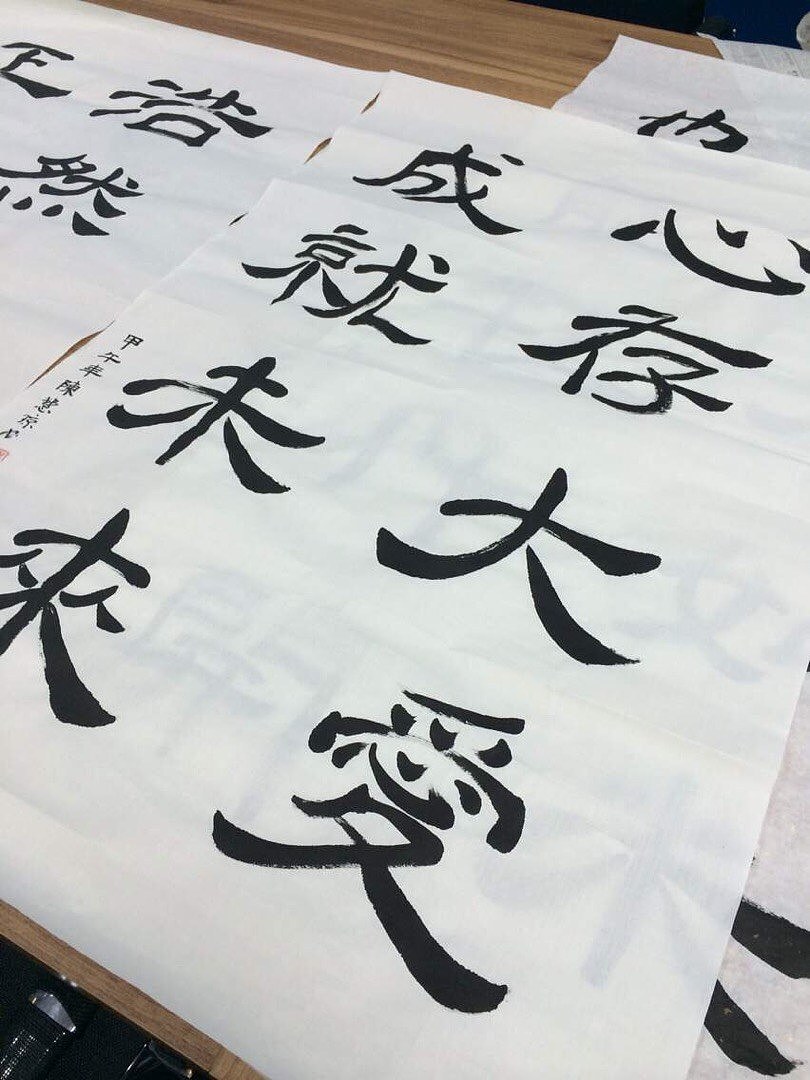 心存大愛
成就未來
甲午年陳慧
浩然
正